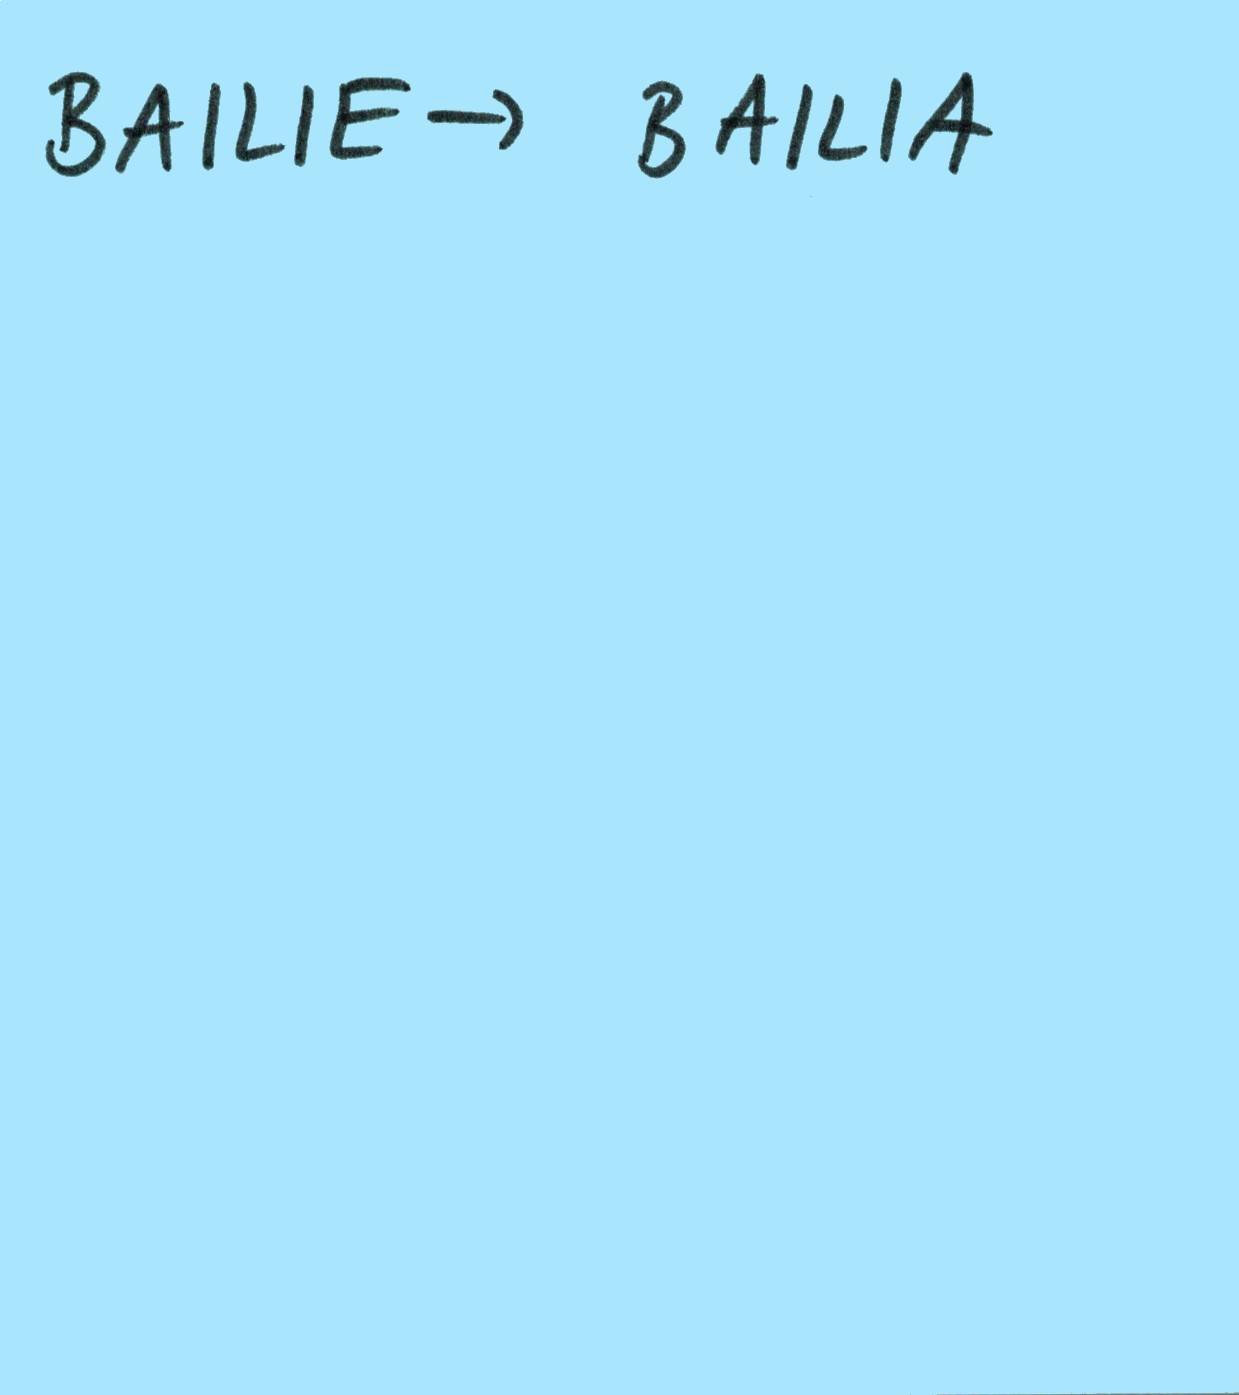 BAILIE → BAILIA